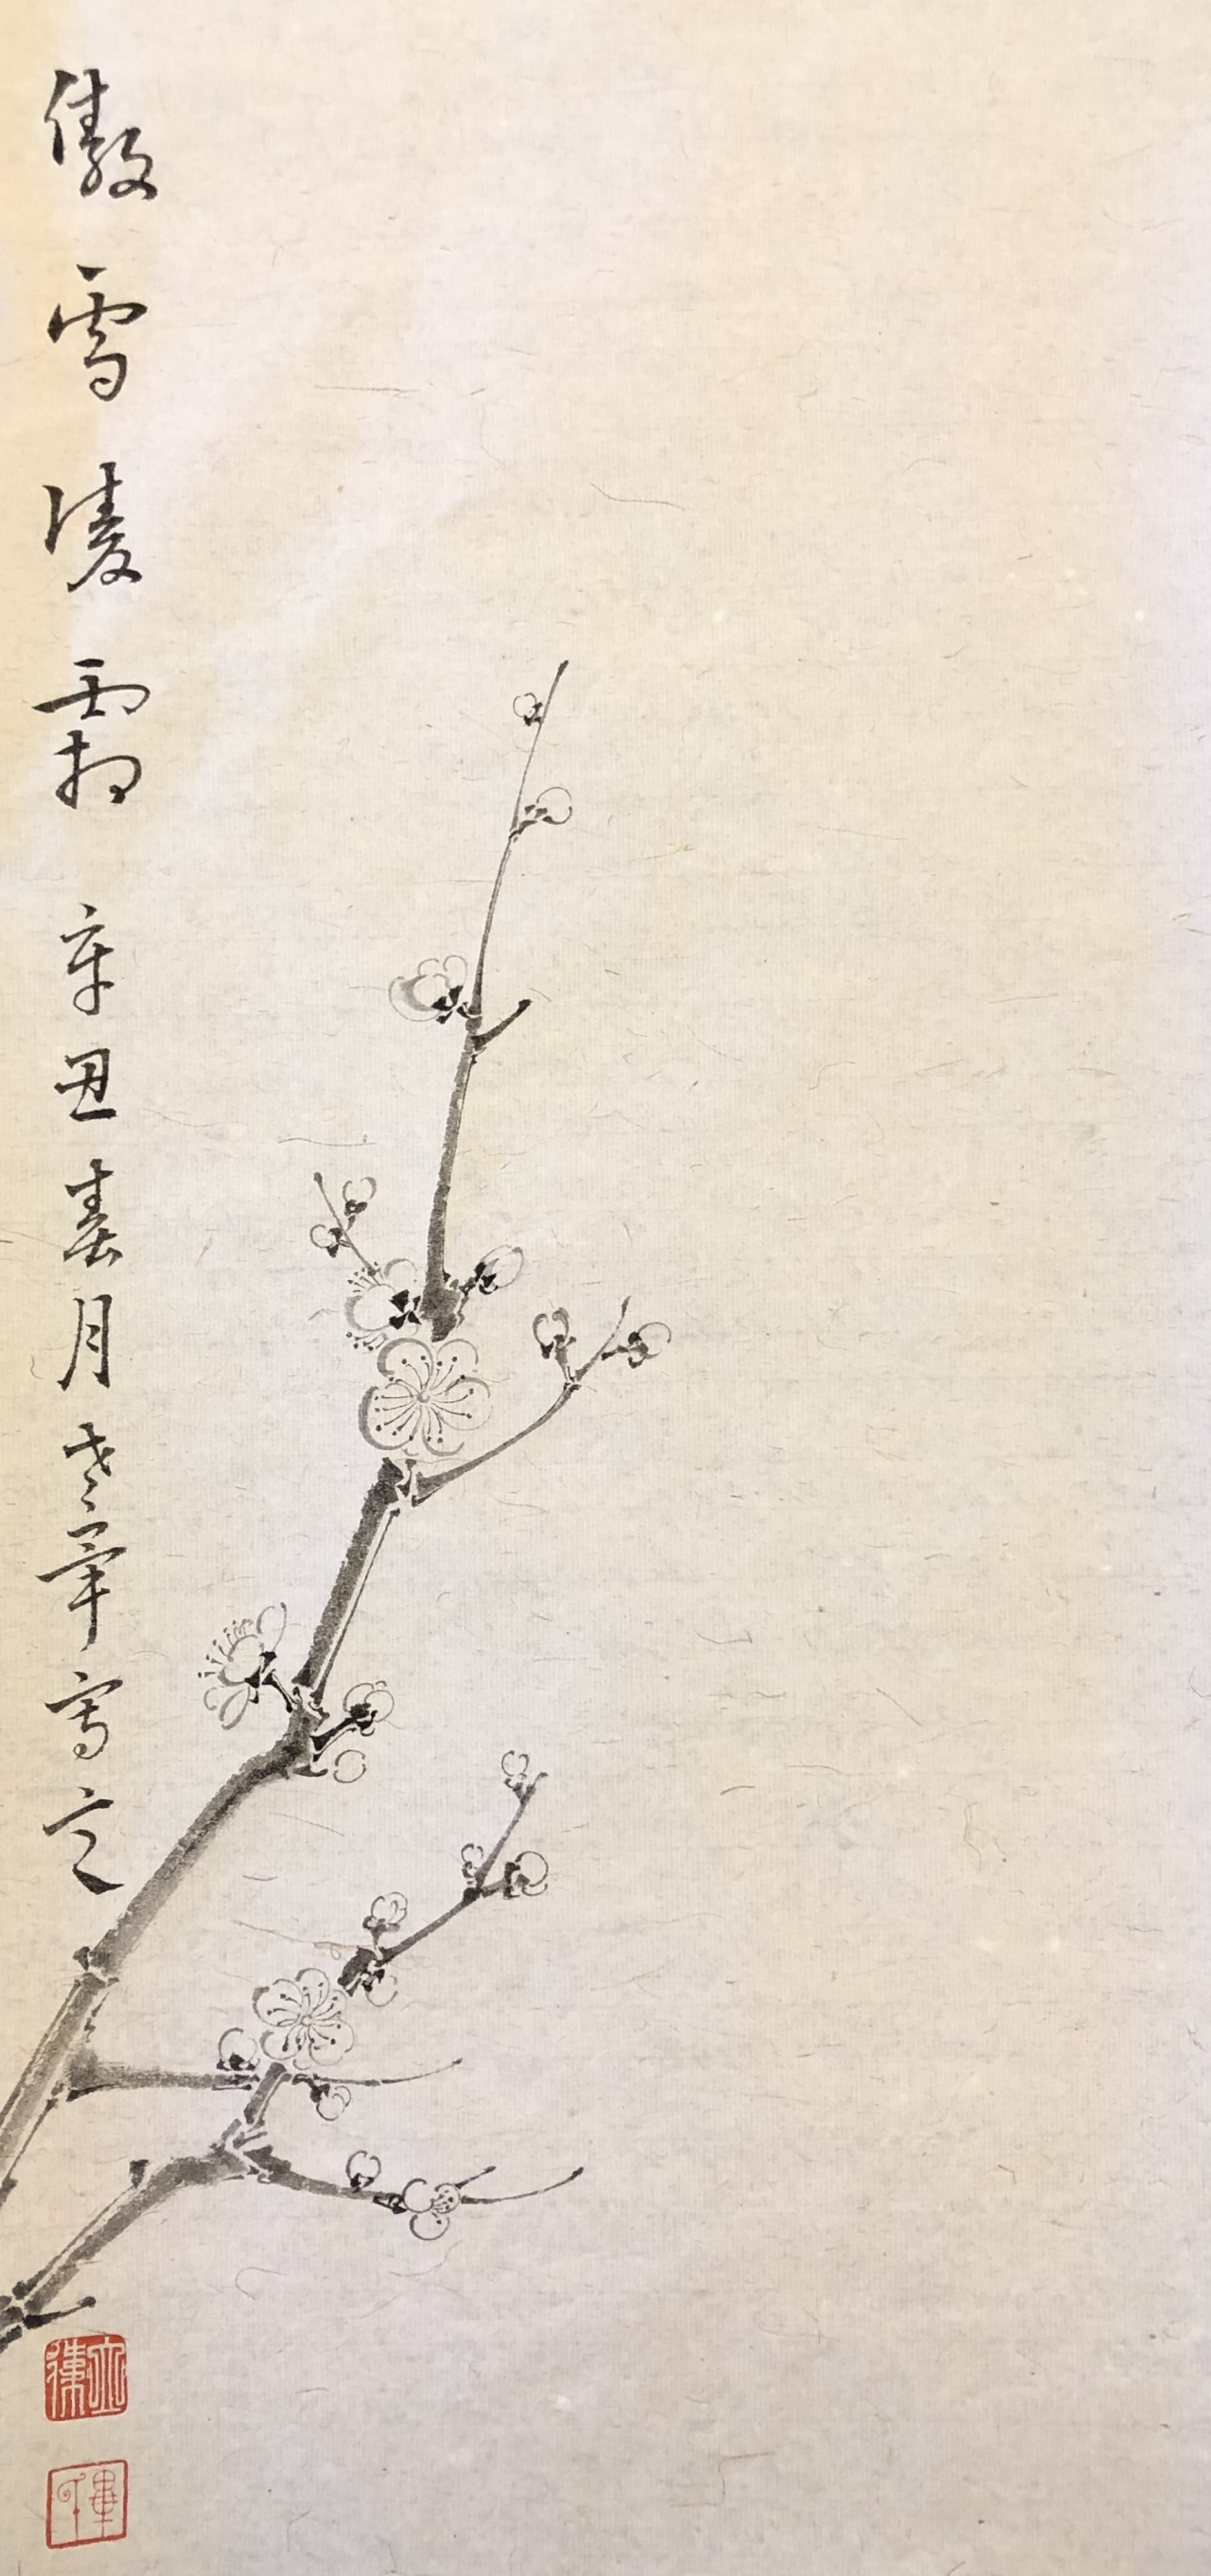 傲雪凌霜 辛丑春月老군寫之